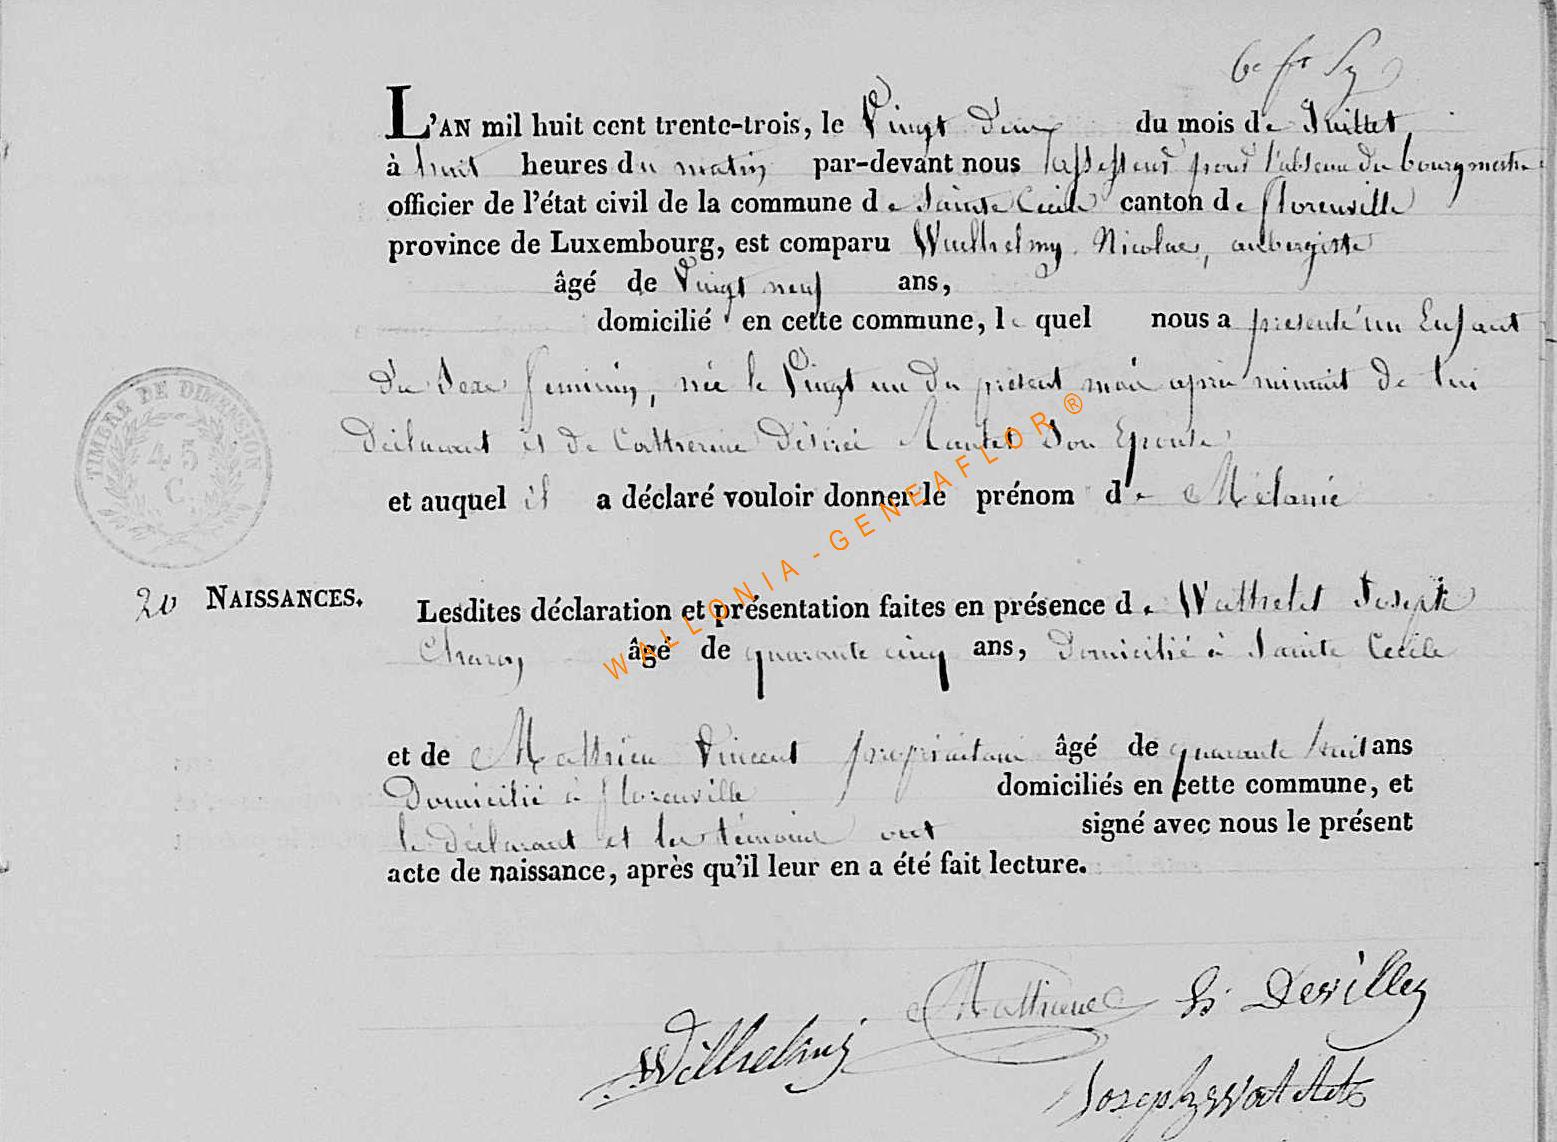 6e ft
L'AN mil huit cent trente-trois, le Vingt deux du mois de Juillet,
à huit heures du matin par-devant nous l'assesseur pour l'absence du bourgmestre
officier de l'état civil de la commune de Sainte Cecile canton de florenville
province de Luxembourg, est comparu Wuilhelmy Nicolas, aubergiste
âgé de Vingt neuf ans,
domicilié en cette commune, le quel nous a presenté un Enfant
du Sexe feminin, née le Vingt un du présent mois après minuit de lui
Déclarant et de Catherine Désirée son Epouse
et auquel il a déclaré vouloir donner le prénom de Mélanie
TIMBRE DE DIMENSION
45
C.
20 NAISSANCES.
Lesdites déclaration et présentation faites en présence de Wathelet Joseph
âgé de quarante cinq ans, Domicilié à Sainte Cecile
et de Mathieu Vincent propriétaire âgé de quarante huit ans
Domicilié à florenville domiciliés en cette commune, et
le déclarant et les témoins ont signé avec nous le présent
acte de naissance, après qu'il leur en a été fait lecture.
WALLONIA-GENEAFLOR®
Mathieu Devillez
Wilhelmij
Joseph Watelet